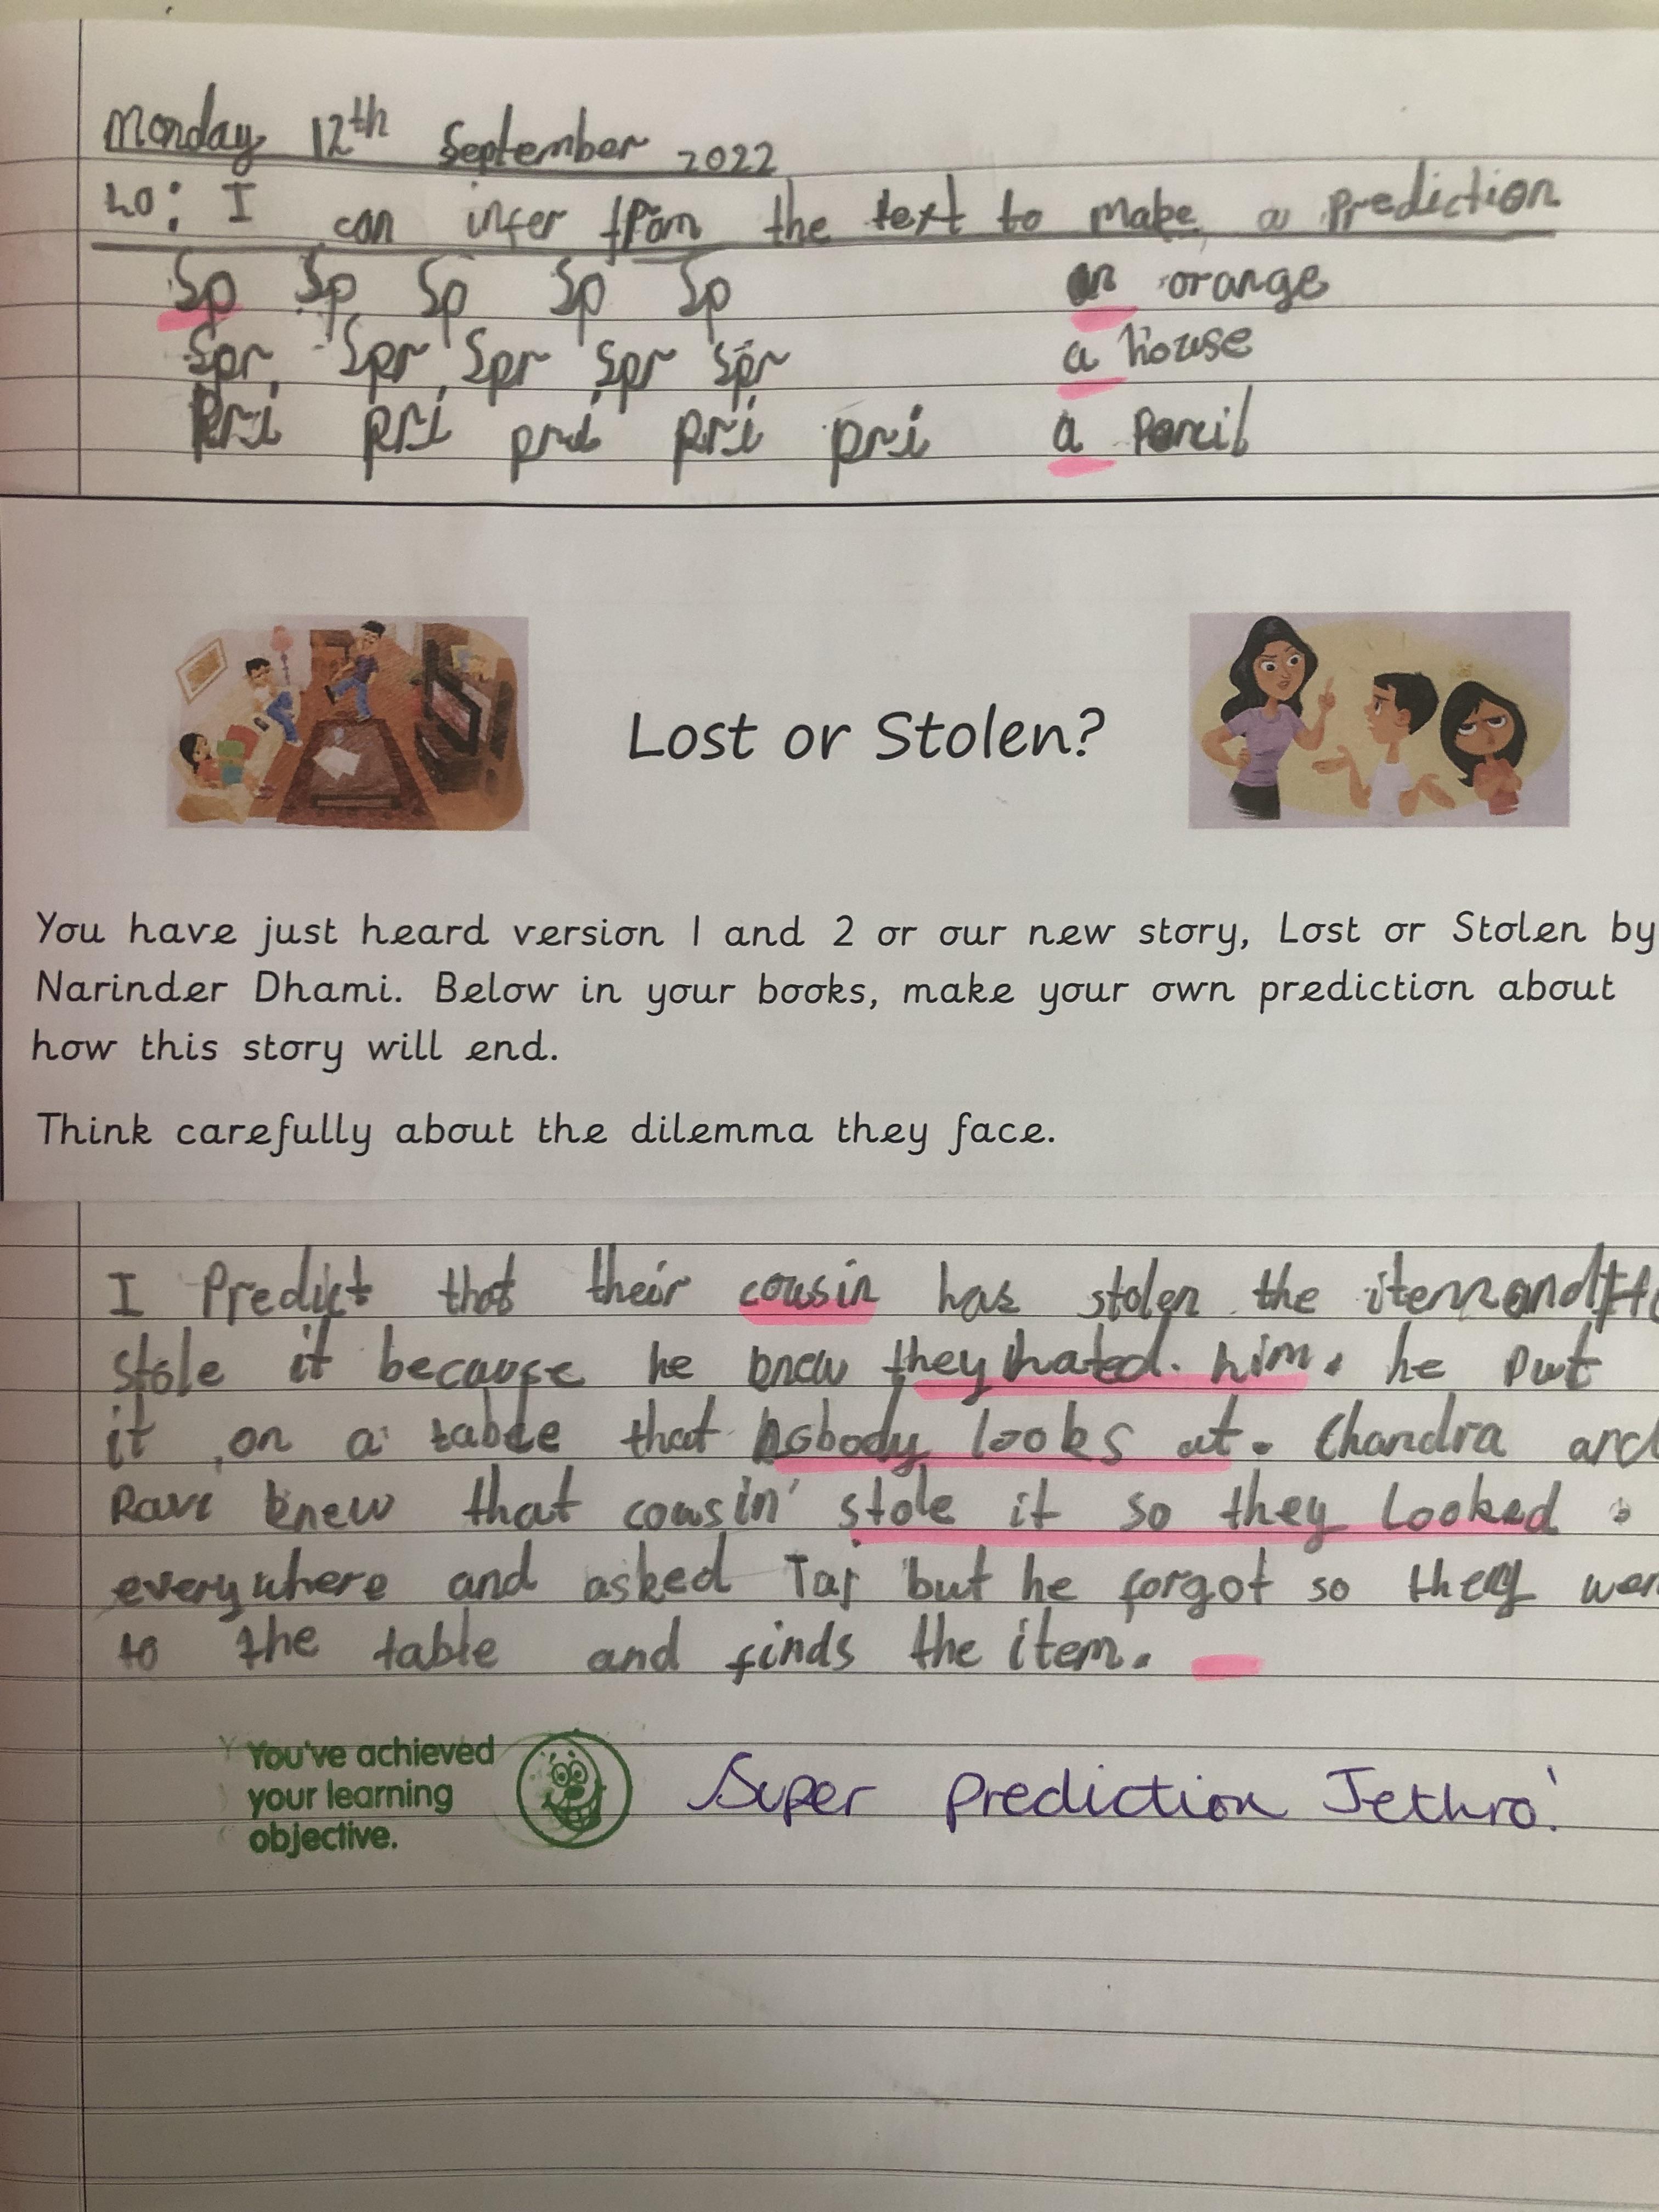 Monday 12th September 2022
LO: I can infer from the text to make a prediction
Sp Sp Sp Sp Sp an orange
Spr Spr Spr Spr Spr a house
Pri pri pri pri pri a Pencil
Lost or Stolen?
You have just heard version 1 and 2 or our new story, Lost or Stolen by
Narinder Dhami. Below in your books, make your own prediction about
how this story will end.
Think carefully about the dilemma they face.
I Predict that their cousin has stolen the item and
stole it because he knew they hated him. he put
it on a table that nobody looks at. Chandra and
Ravi knew that cousin stole it so they looked
everywhere and asked Taj but he forgot so they wen
to the table and finds the item.
You've achieved
your learning
objective.
Super prediction Jethro!